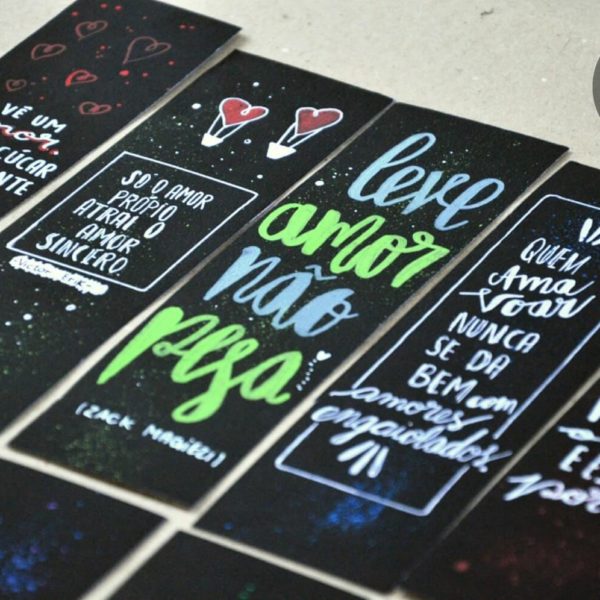 VÊ UM
amor.
UCAR
NTE
SÓ O AMOR
PRÓPIO
ATRAI O
AMOR
SINCERO.
leve
amor
não
pesa
(ZACK MAGIEZI)
QUEM
Ama
voar
NUNCA
SE DA
BEM com
amores
engaiolados.
E E
por